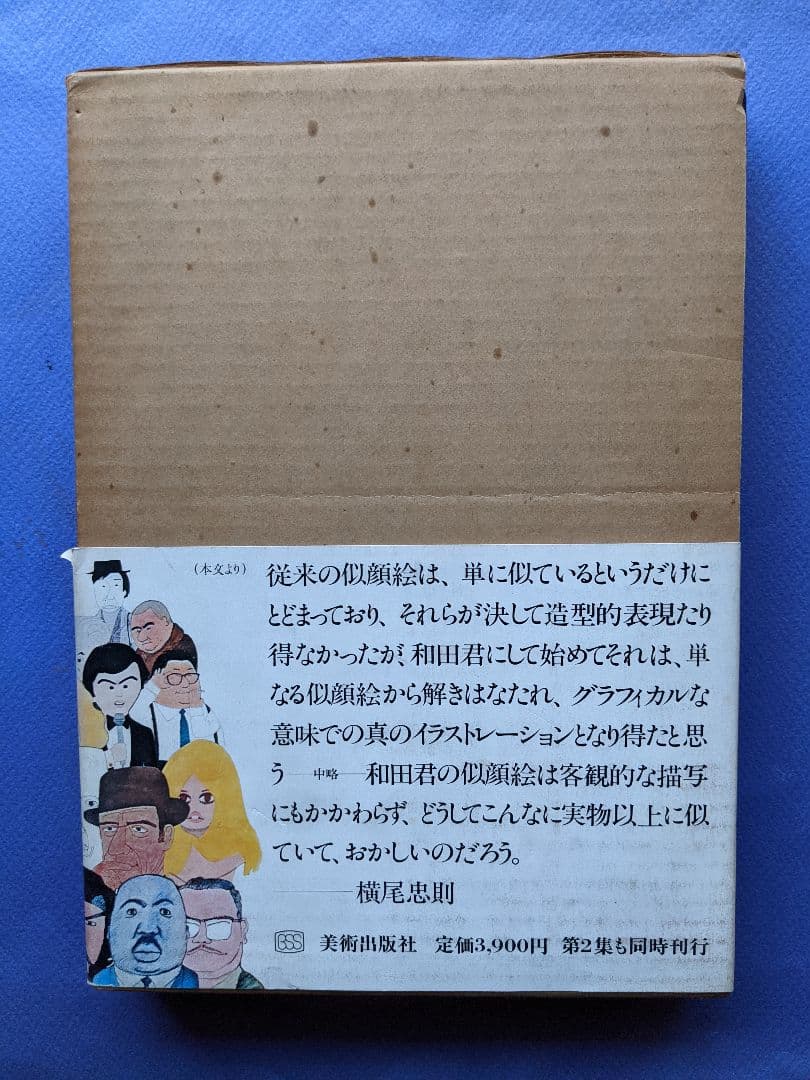 (本文より)
従来の似顔絵は、単に似ているというだけに
とどまっており、それらが決して造型的表現たり
得なかったが、和田君にして始めてそれは、単
なる似顔絵から解きはなたれ、グラフィカルな
意味での真のイラストレーションとなり得たと思
う——中略——和田君の似顔絵は客観的な描写
にもかかわらず、どうしてこんなに実物以上に似
ていて、おかしいのだろう。
———横尾忠則
BSS 美術出版社 定価3,900円 第2集も同時刊行